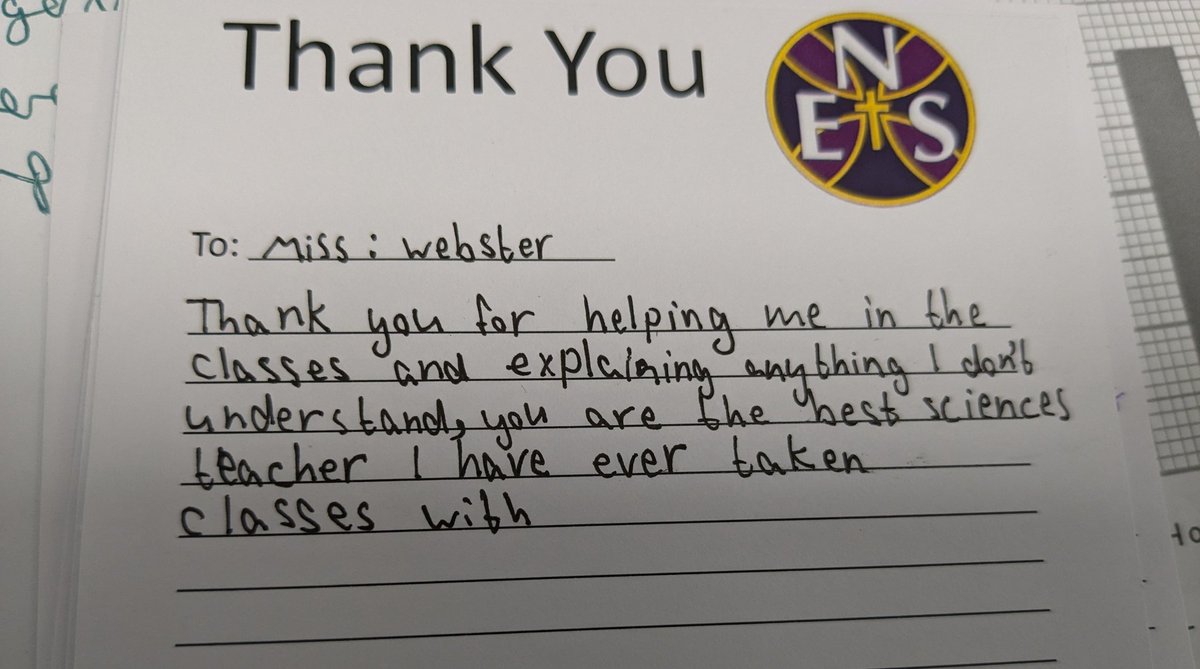 Thank You
N
E S
To: Miss: webster
Thank you for helping me in the
classes and explaining anything I don't
understand, you are the best sciences
teacher I have ever taken
classes with